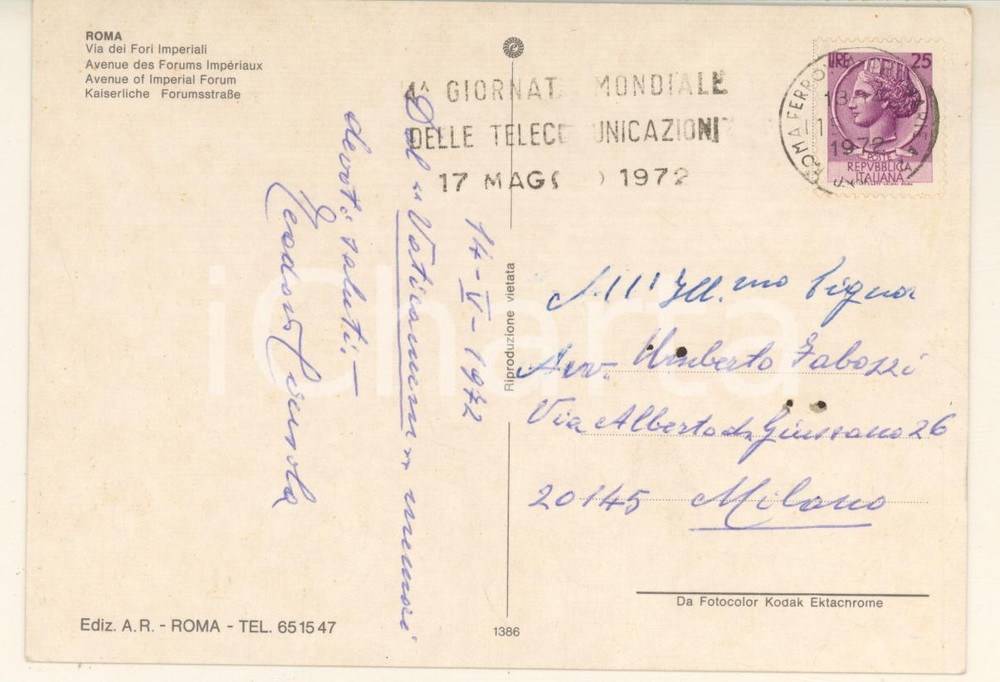 ROMA
Via dei Fori Imperiali
Avenue des Forums Impériaux
Avenue of Imperial Forum
Kaiserliche Forumsstraße
4ª GIORNAT MONDIALE
DELLE TELEC UNICAZIONI
17 MAGG 1972
ROMA FERROV
1972
LIRE 25
POSTE
REPVBBLICA
ITALIANA
14-V-1972
Dal "Vaticanum" memori
devoti saluti.-
Riproduzione vietata
All'Ill.mo Signor
Avv. Umberto Fabozzi
Via Alberto da Giussano 26
20145 Milano
iCharta
Da Fotocolor Kodak Ektachrome
Ediz. A.R. - ROMA - TEL. 651547
1386